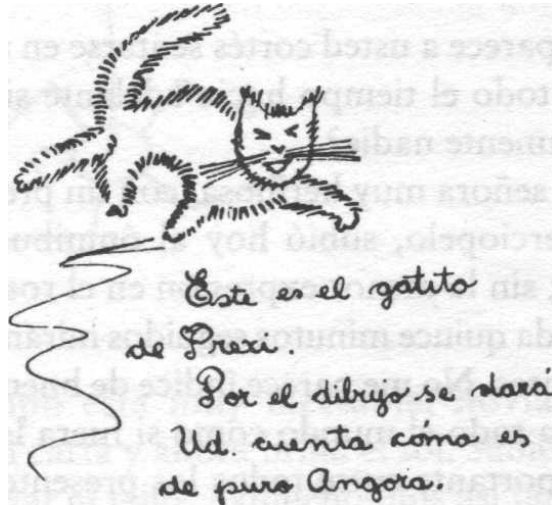 Este es el gatito
de Prexi.
Por el dibujo se dará
Ud. cuenta cómo es
de puro Angora.